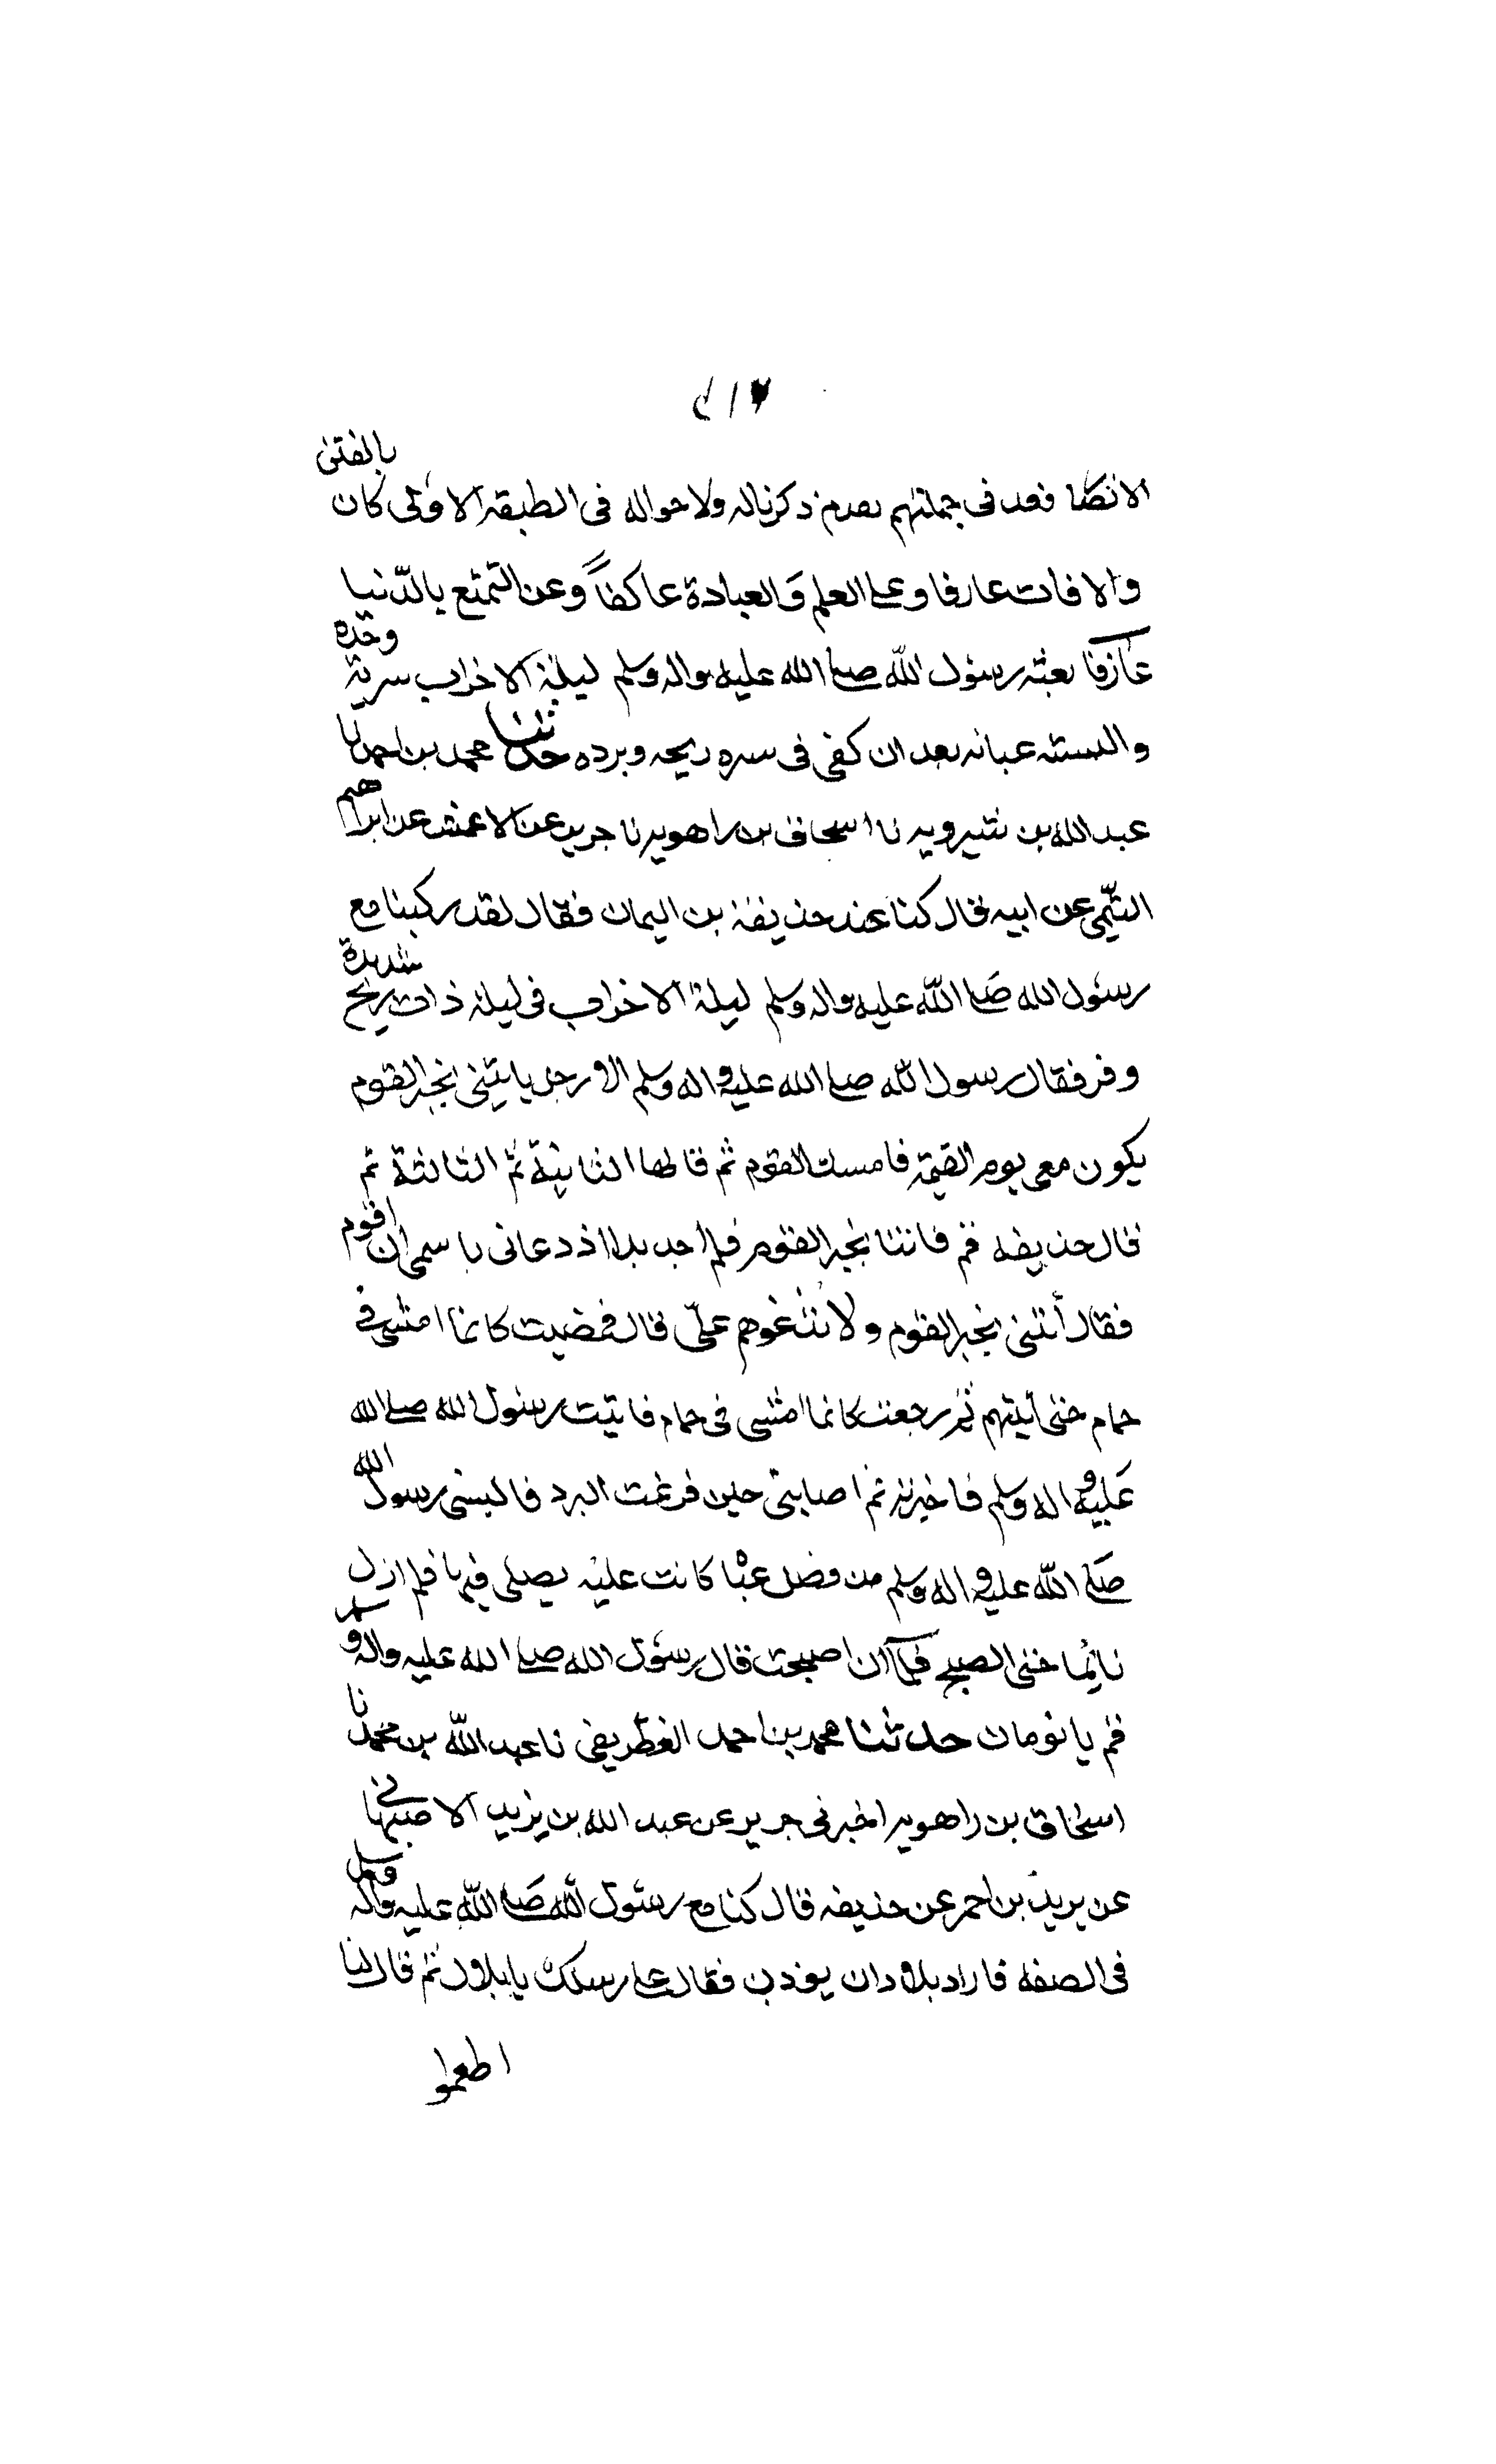 الانصا فعد فى جملتهم تقدم ذكرناله ولاحواله فى الطبقة الاولى كان بالفتن
والافات عارفا وعلى العلم والعبادة عاكفاً وعن التمتع بالدّنيا
عازفا بعثه رسول الله صلى الله عليه واله وسلم ليلة الاحزاب سرية وحده
والبسته عبائه بعد ان كفى فى سره ريحه وبرده حدثنا محمد بن احمد نا
عبد الله بن شيرويه نا اسحاق بن راهويه نا جرير عن الاعمش عن ابراهيم
التيّمى عن ابيه قال كنا عند حذيفة بن اليمان فقال لقد ركبنا مع
رسول الله صلى الله عليه واله وسلم ليلة الاحزاب فى ليلة ذات ريح شديدة
وقر فقال رسول الله صلى الله عليه واله وسلم الا رجل ياتينى بخبر القوم
يكون معى يوم القيمة فامسك القوم ثم قالها الثانية ثمّ الثالثة ثم
قال حذيفة قم فاتنا بخبر القوم فلم اجد بدا اذ دعانى باسمى ان اقوم
فقال أتنى بخبر القوم ولا تذعرهم علىّ قال فمضيت كانما امشى فى
حمام حتى اتيتهم ثم رجعت كانما امشى فى حمام فاتيت رسول الله صلى الله
عليه واله وسلم فاخبرته ثم اصابنى حين فرغت البرد فالبسنى رسول الله
صلى الله عليه واله وسلم من فضل عبا كانت عليه يصلى فيها فلم ازل
نائما حتى الصبح فلمّا ان اصبحت قال رسول الله صلى الله عليه واله وسلم
قم يا نومان حدثنا محمد بن احمد الغطريفى نا عبد الله بن محمد نا
اسحاق بن راهويه اخبرنى جرير عن عبد الله بن يزيد الاصبهانى
عن يزيد بن احمر عن حذيفه قال كنا مع رسول الله صلى الله عليه واله وسلم
فى الصفه فاراد بلال ان يوذن فقال على رسلك يا بلال ثم قال لنا
اطعموا